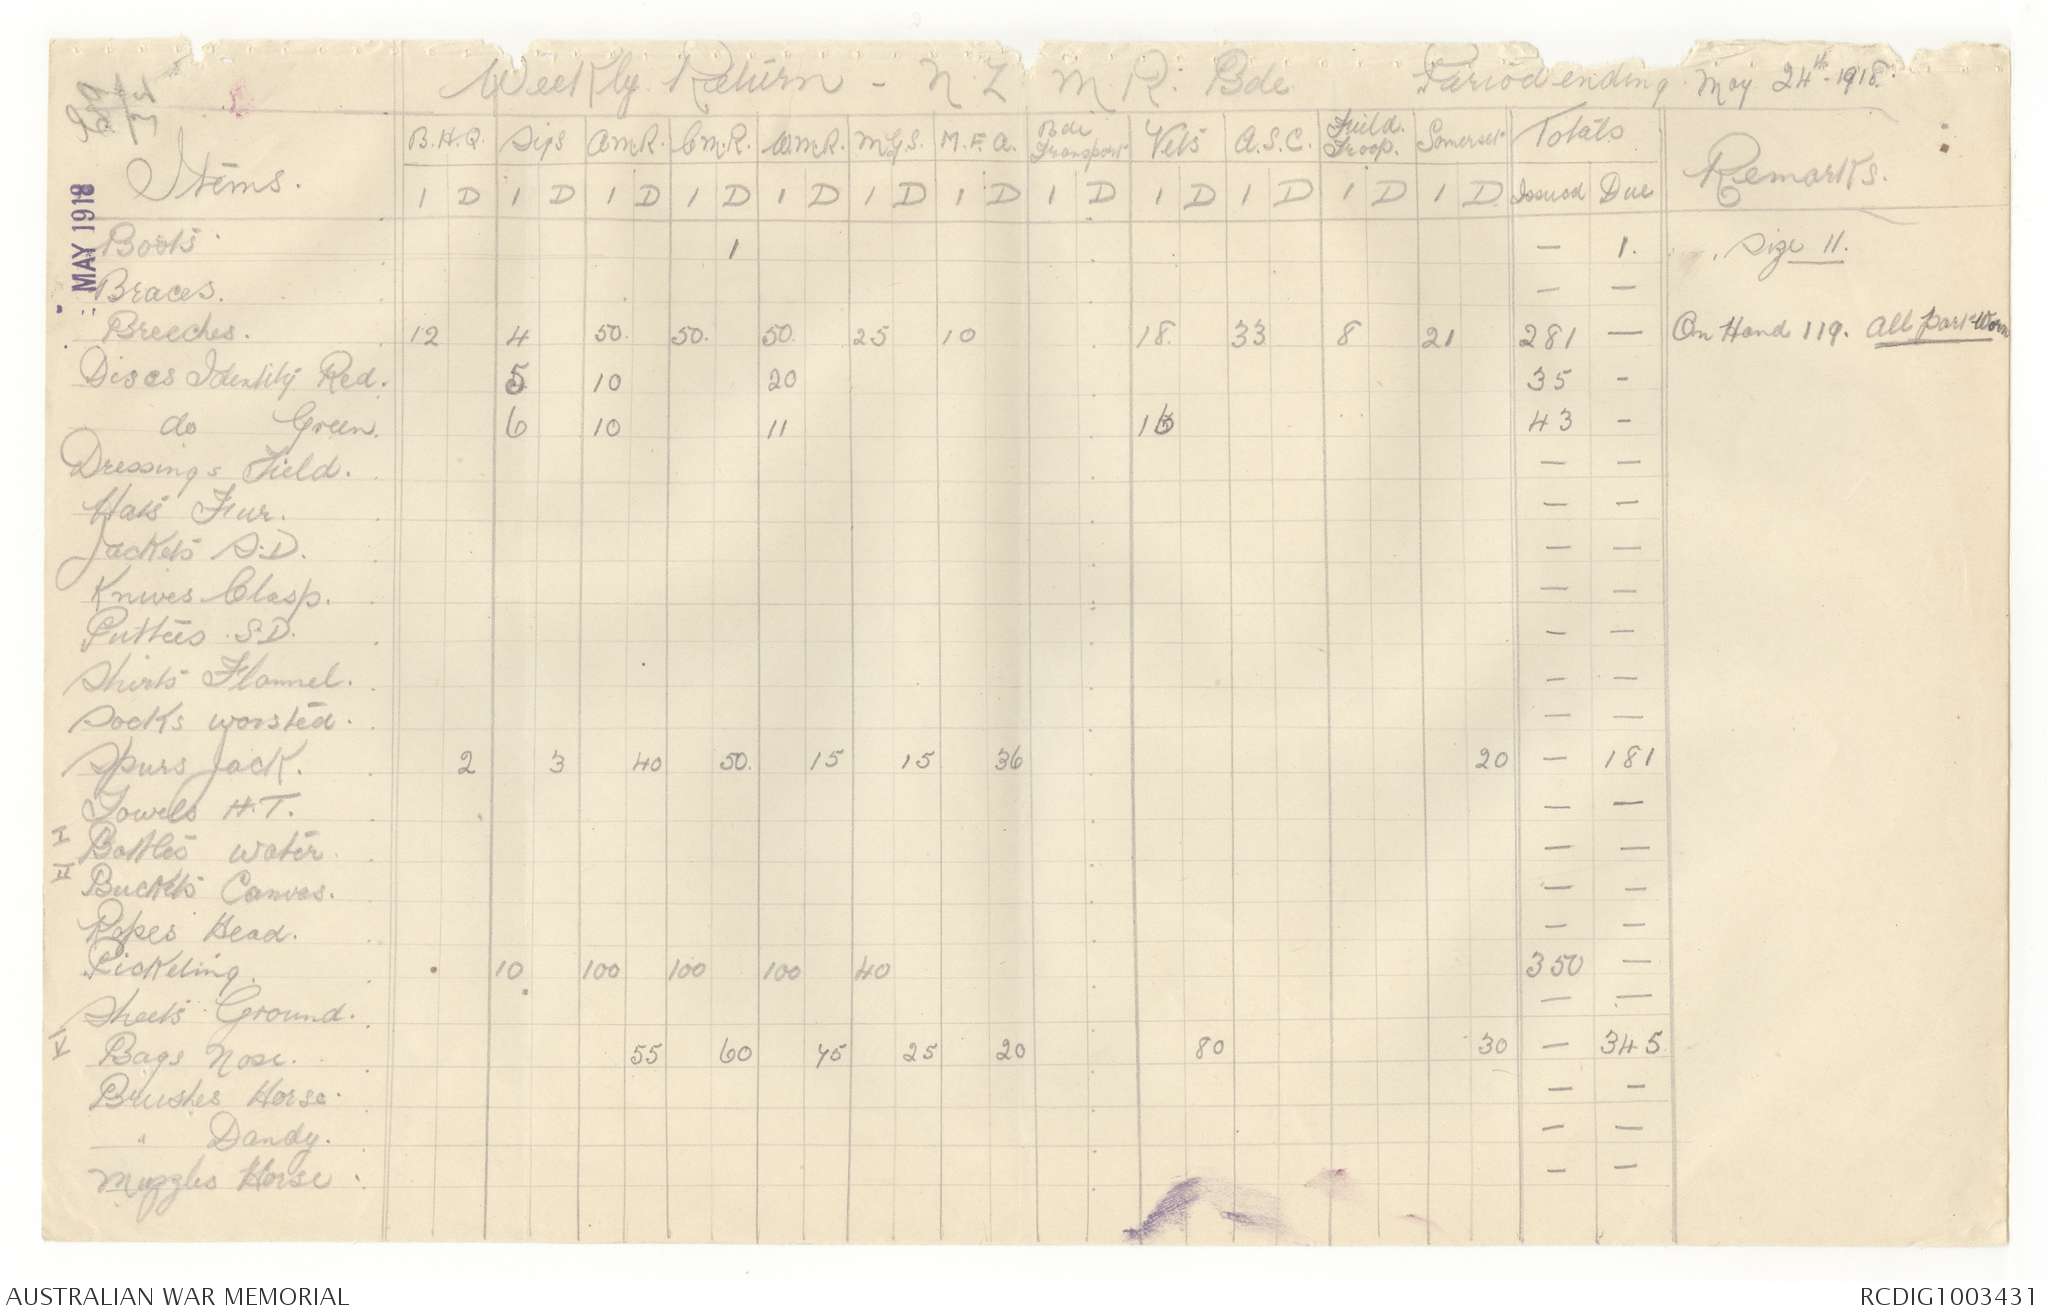 Weekly Return - N Z M. R. Bde Period ending May 24th 1918.
MAY 1918
Items. B.H.Q. Sigs A.M.R. C.M.R. W.M.R. M.G.S. M.F.A. Bde Transport Vets A.S.C. Field Troop. Somerset Totals Remarks.
1 D 1 D 1 D 1 D 1 D 1 D 1 D 1 D 1 D 1 D 1 D 1 D Issued Due
Boots 1 — 1. Size 11.
Braces. — —
Breeches. 12 4 50. 50. 50. 25 10 18. 33 8 21 281 — On Hand 119. All part-worn
Discs Identity Red. 5 10 20 35 -
do Green. 6 10 11 16 43 -
Dressings Field. — —
Hats Fur. — —
Jackets S.D. — —
Knives Clasp. — —
Puttees S.D. — —
Shirts Flannel. — —
Socks worsted. — —
Spurs Jack. 2 3 40 50. 15 15 36 20 — 181
Towels H.T. — —
I Bottles water. — —
II Buckets Canvas. — —
Ropes Head. — —
Picketing. 10 100 100 100 40 350 —
Sheets Ground. — —
V Bags Nose. 55 60 75 25 20 80 30 — 345
Brushes Horse. — —
" Dandy. — —
Muzzles Horse. — —
AUSTRALIAN WAR MEMORIAL RCDIG1003431